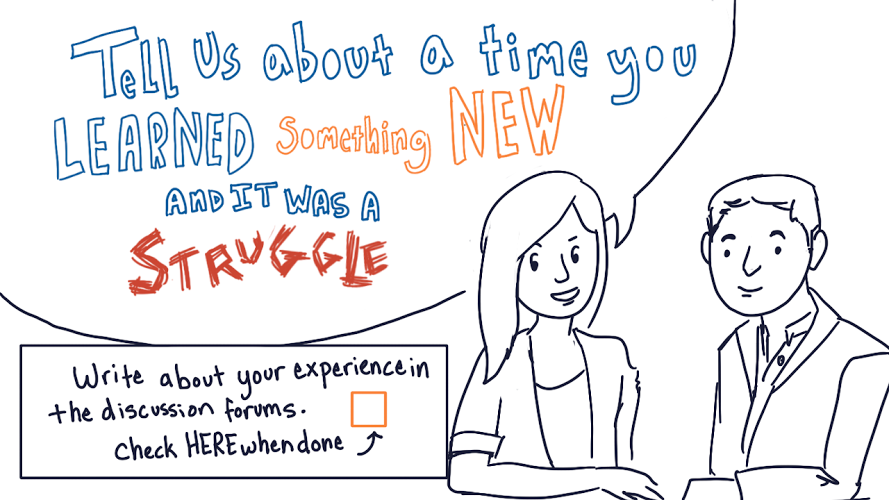 Tell Us about a time you
LEARNED Something NEW
AND IT WAS A
STRUGGLE
Write about your experience in
the discussion forums.
Check HERE when done